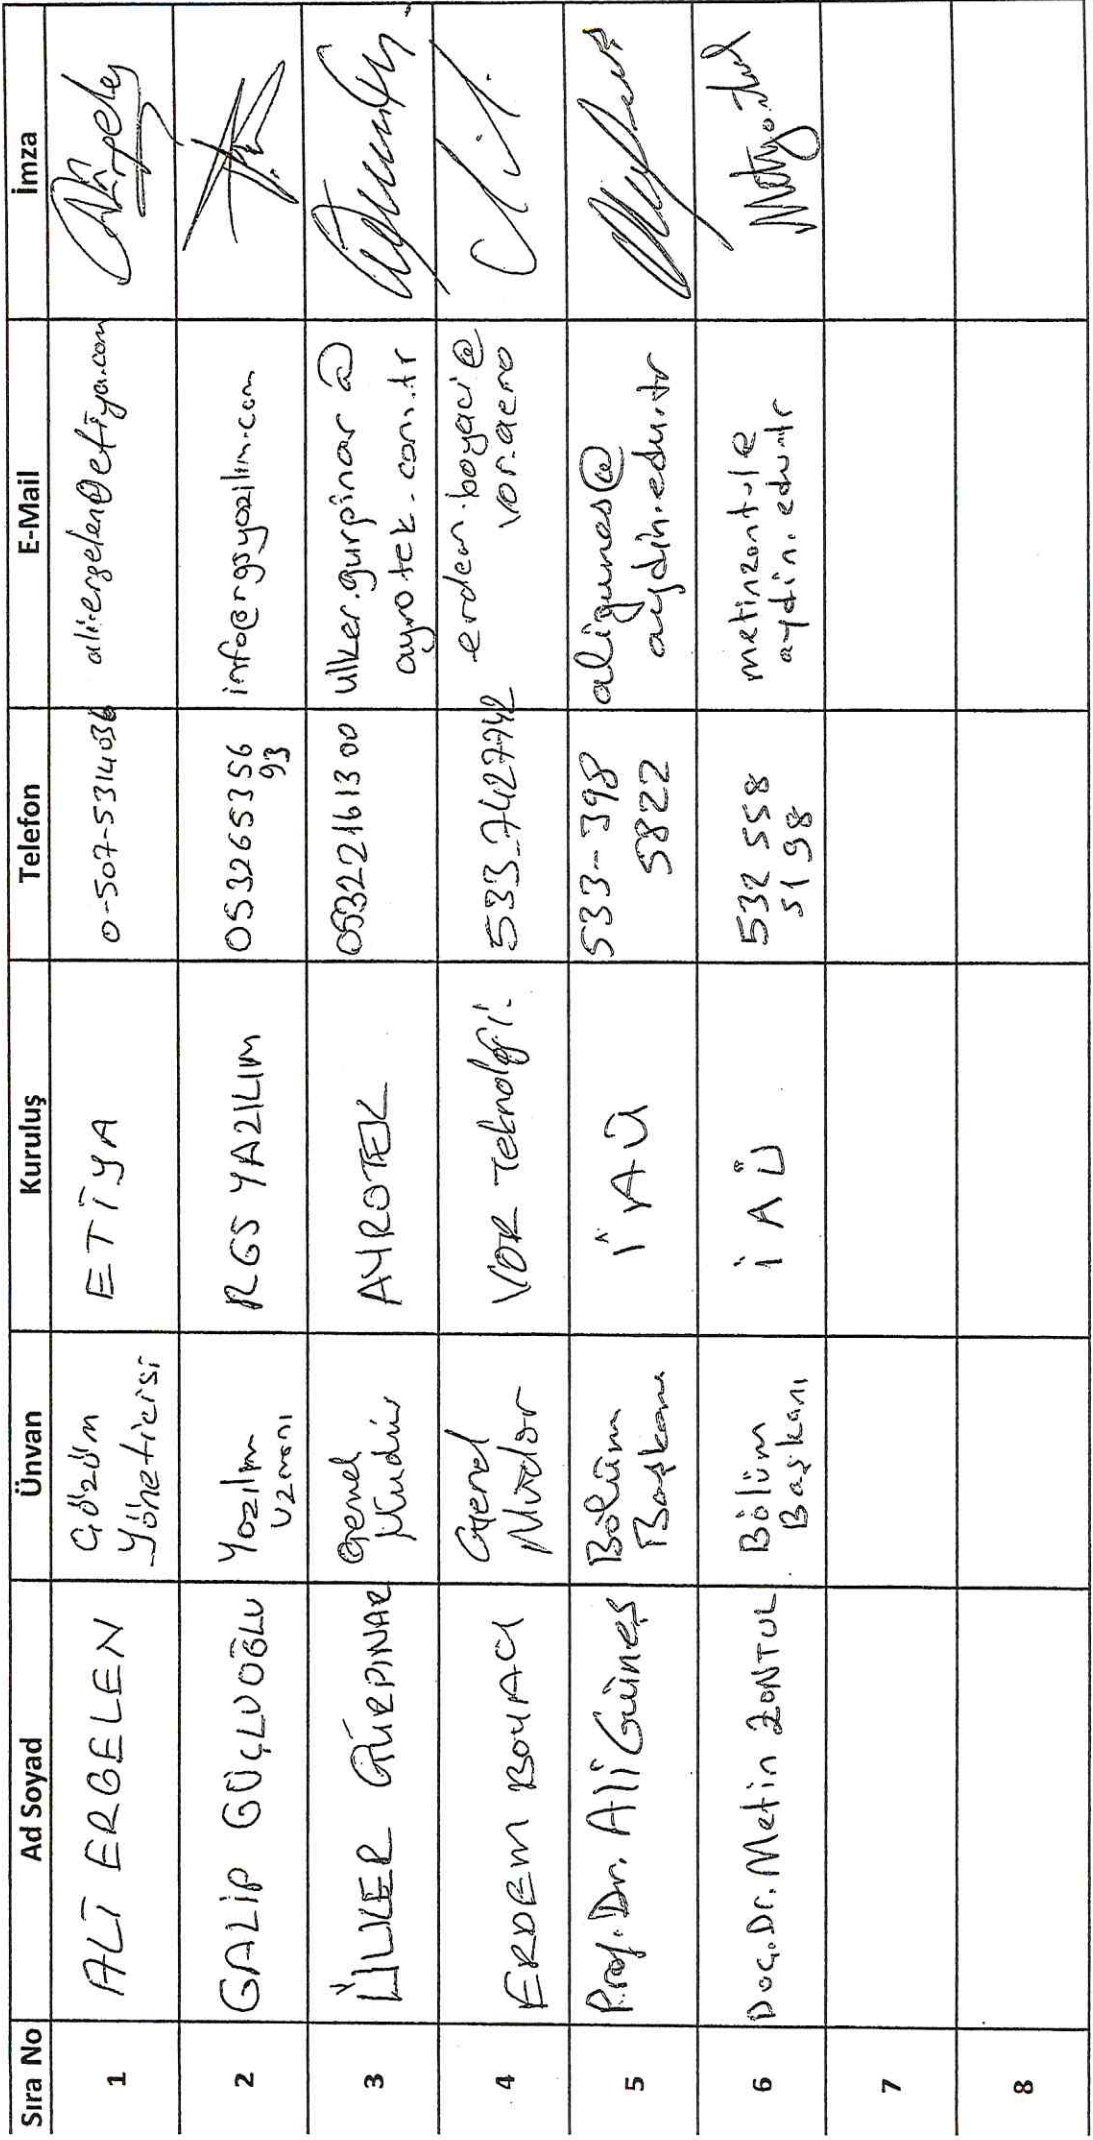 Sıra No Ad Soyad Ünvan Kuruluş Telefon E-Mail İmza
1 ALİ ERGELEN Çözüm Yöneticisi ETİYA 0-507-5314036 ali.ergelen@etiya.com
2 GALİP GÜÇLÜOĞLU Yazılım Uzmanı RGS YAZILIM 053265356 93 info@rgsyazilim.com
3 ÜLKER GÜRPINAR Genel Müdür AYROTEK 05322161300 ulker.gurpinar@
ayrotek.com.tr
4 ERDEM BOYACI Genel Müdür VOR Teknoloji. 533_7427742 erdem.boyaci@
vor.aero
5 Prof. Dr. Ali Güneş Bölüm Başkanı İAÜ 533-398 5822 aligunes@
aydin.edu.tr
6 Doç. Dr. Metin ZONTUL Bölüm Başkanı İAÜ 532 558 51 98 metinzontul@
aydin.edu.tr
7
8